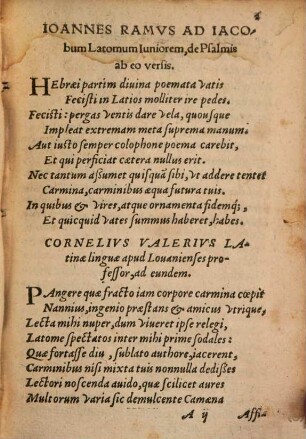 IOANNES RAMVS AD IACO-
bum Latomum Iuniorem, de Psalmis
ab eo versis.
HEbræi partim diuina poemata vatis
Fecisti in Latios molliter ire pedes.
Fecisti: pergas ventis dare vela, quousque
Impleat extremam meta suprema manum.
Aut iusto semper colophone poema carebit,
Et qui perficiat cætera nullus erit.
Nec tantum aßumet quisquã sibi, vt addere tentet
Carmina, carminibus æqua futura tuis.
In quibus & vires, atque ornamenta fidemq́;,
Et quicquid vates summus haberet, habes.
CORNELIVS VALERIVS LA-
tinæ linguæ apud Louanienses pro-
fessor, ad eundem.
PAngere quæ fracto iam corpore carmina cœpit
Nannius, ingenio præstans & amicus vtrique,
Lecta mihi nuper, dum viueret ipse relegi,
Latome spectatos inter mihi prime sodales:
Quæ fortasse diu, sublato authore, iacerent,
Carminibus nisi mixta tuis nonnulla dedißes
Lectori noscenda auido, quæ scilicet aures
Multorum varia sic demulcente Camœna
A ij Aßia